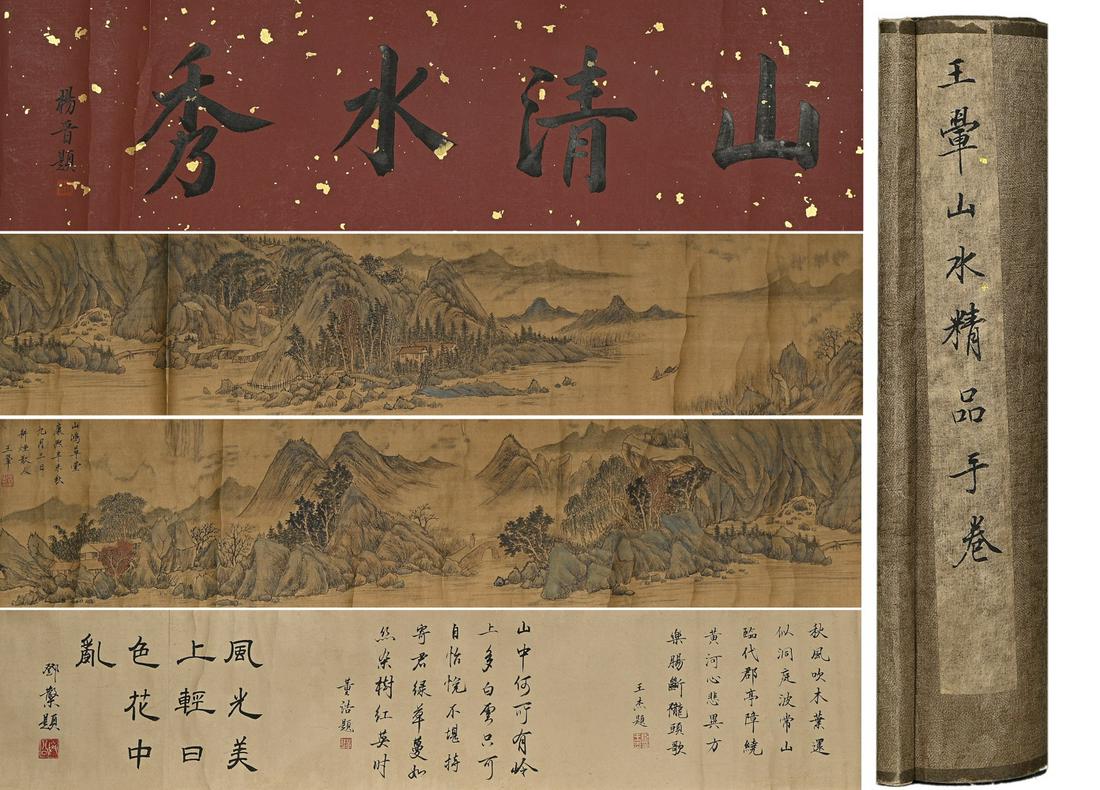 山清水秀
楊晋題
康熙辛未秋
九月三日
耕煙散人
王翬
秋風吹木葉還
似洞庭波常山
臨代郡亭障繞
黃河心悲異方
樂腸斷隴頭歌
王杰題
山中何所有岭
上多白雲只可
自怡悅不堪持
寄君綠草蔓如
絲雜樹紅英时
風光美
上輕日
色花中
亂
王翬山水精品手卷